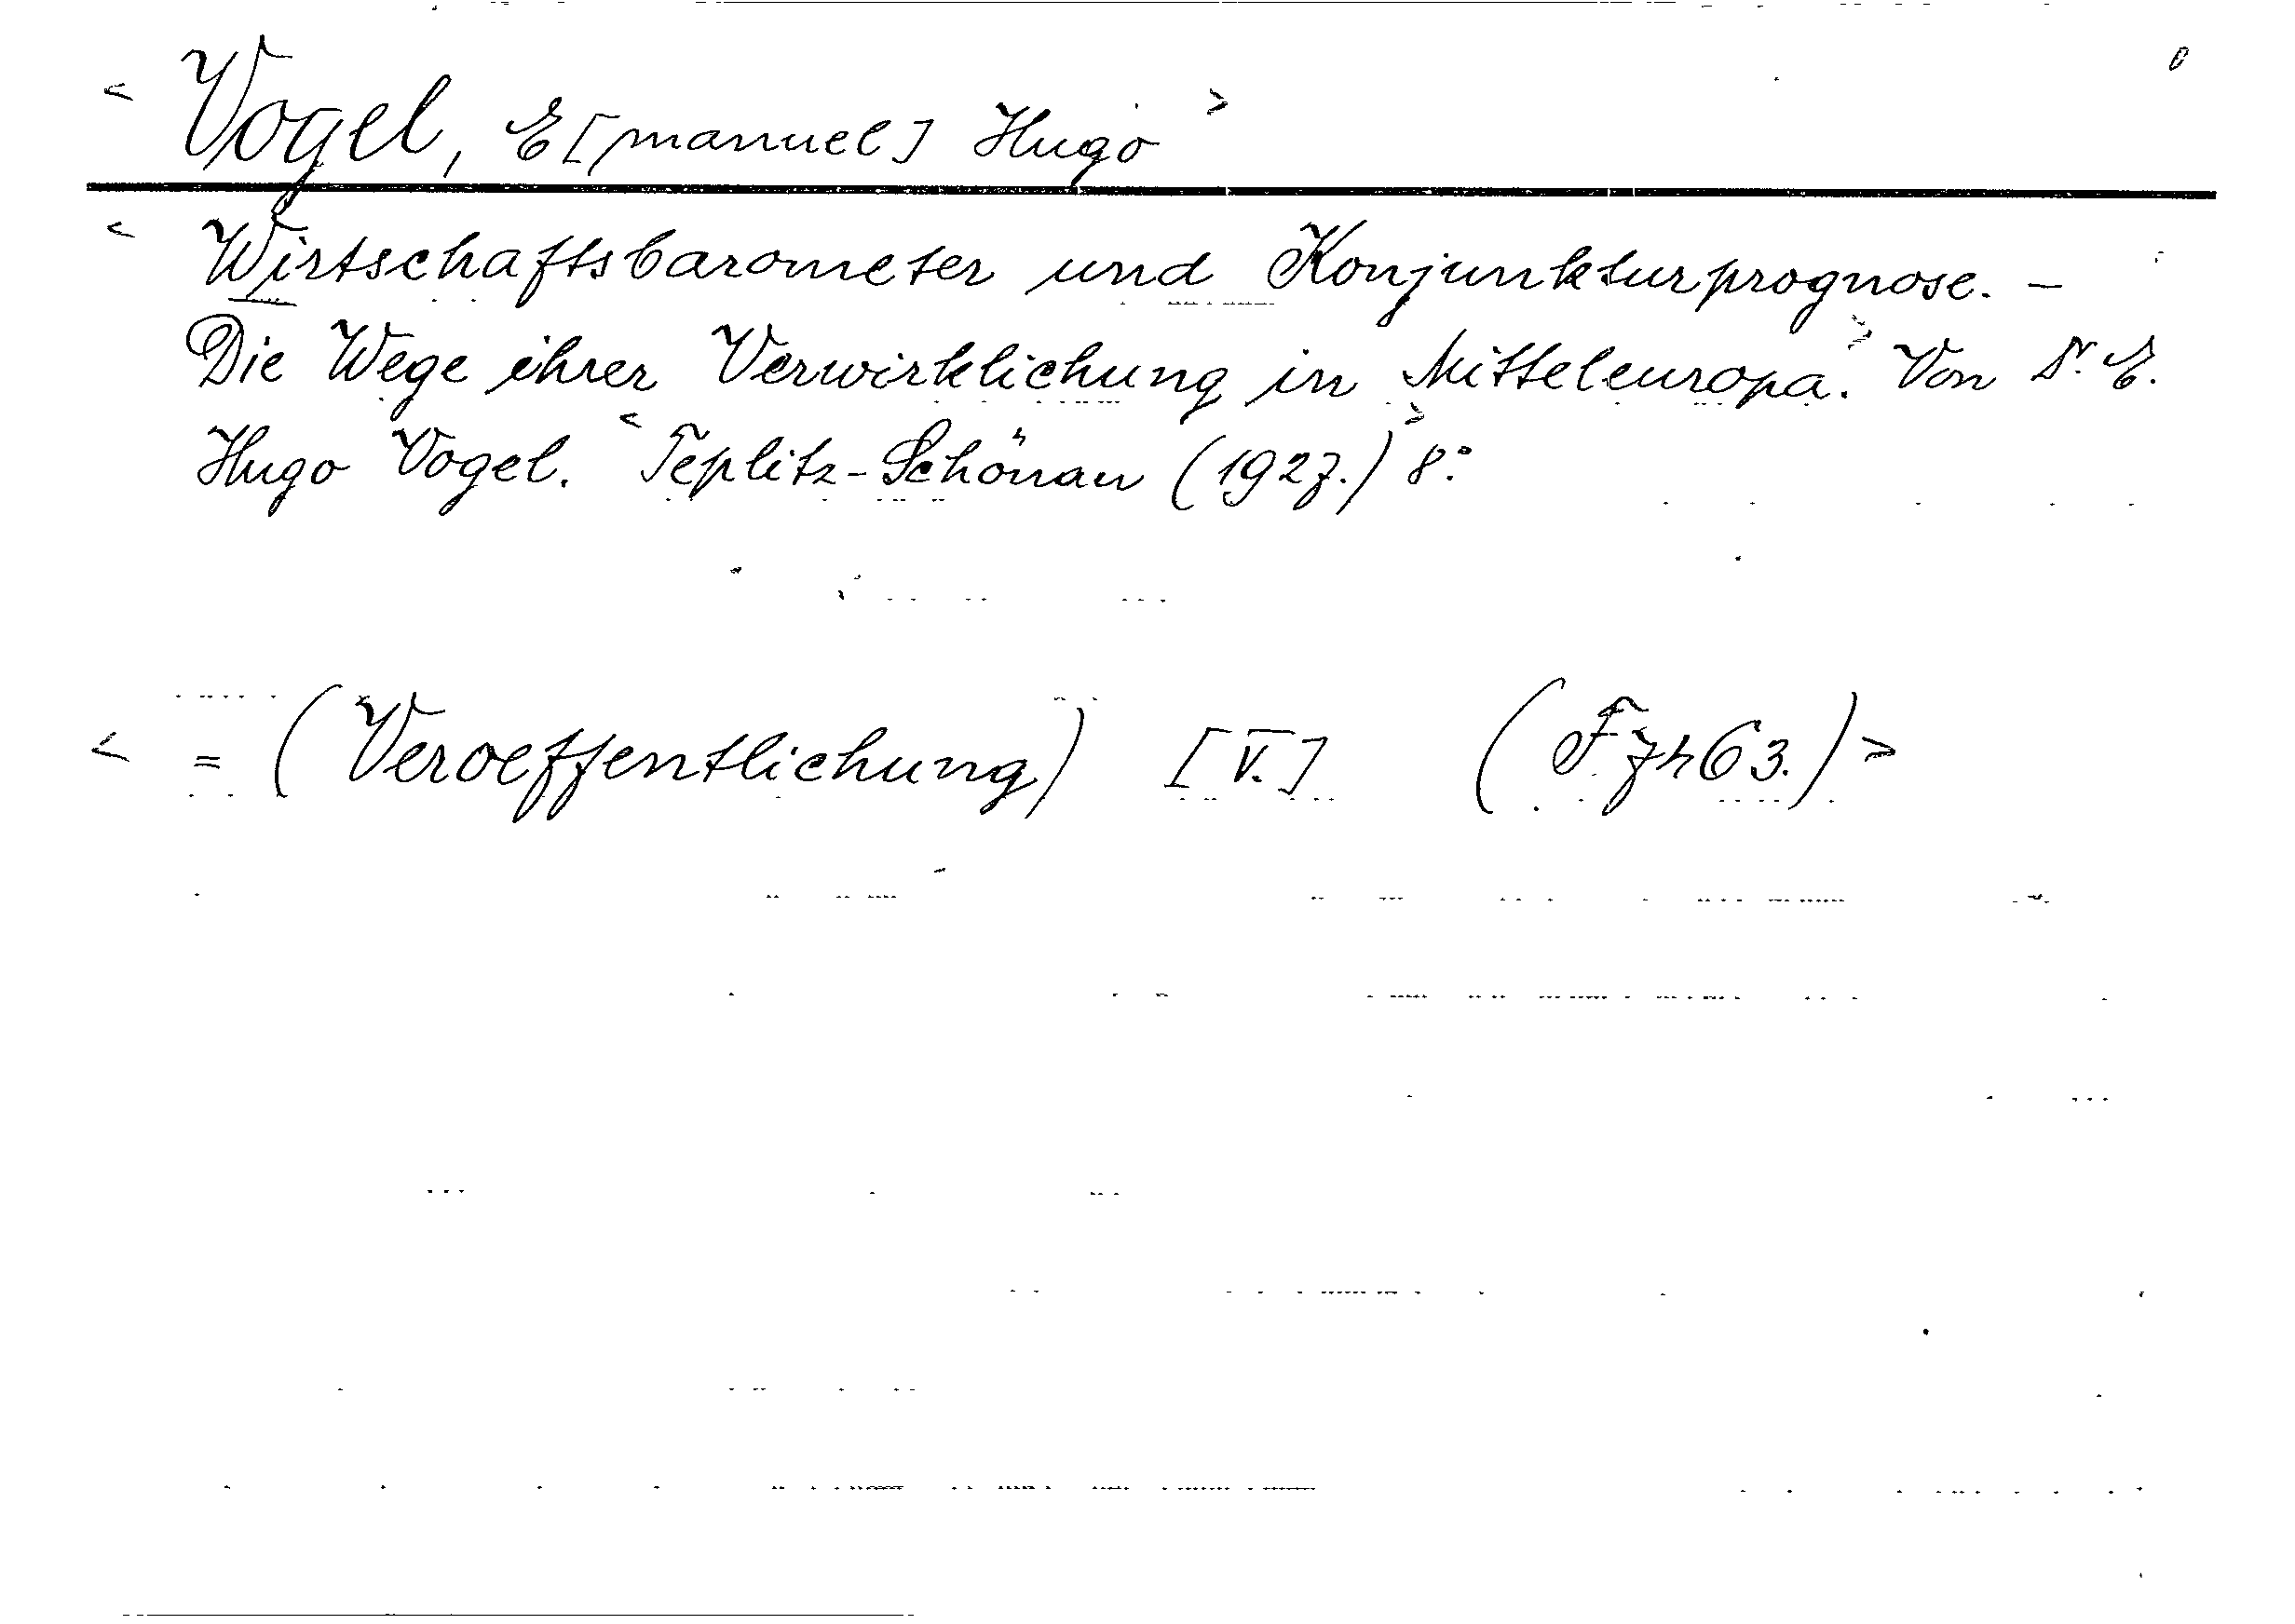 < Vogel, E[manuel] Hugo >
< Wirtschaftsbarometer und Konjunkturprognose. –
Die Wege ihrer Verwirklichung in Mitteleuropa. > Von Dr. E.
Hugo Vogel. < Teplitz-Schönau (1927.) > 8°.
< = (Veroeffentlichung) [V.] (F 7463.) >